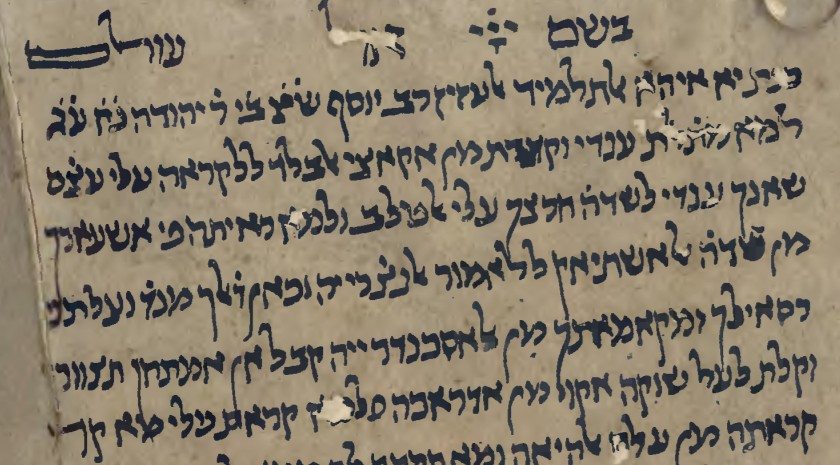 בשם ייי אל עולם
כנת איהא אלתלמיד אלעזיז רב יוסף ש̇צ̇ ב̇ר̇ ר̇ יהודה נ̇ע̇
למא מת̇לת ענדי וקצדת מן אקאצי אלבלאד ללקראה עלי עט̇ם
שאנך ענדי לשדה̈ חרצך עלי אלטלב ולמא ראיתה פי אשעארך
מן שדה̈ אלאשתיאק ללאמור אלנט̇רייה וכאן ד̇לך מנד̇ וצלתני
רסאילך ומקאמאתך מן אלאסכנדרייה קבל אן אמתחן תצוורך
וקלת לעל שוקה אקוי מן אדראכה פלמא קראת עלי מא קד
קראתה מן עלם אלהיאה ומא